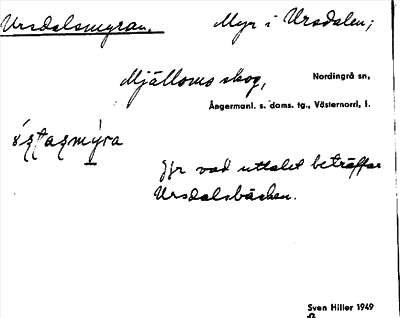 Ursdalsmyran. Myr i Ursdalen;
Mjälloms skog, Nordingrå sn,
Ångermanl. s. doms. tg., Västernorrl. l.
Jfr vad uttalet beträffar
Ursdalsbäcken.
Sven Hiller 1949